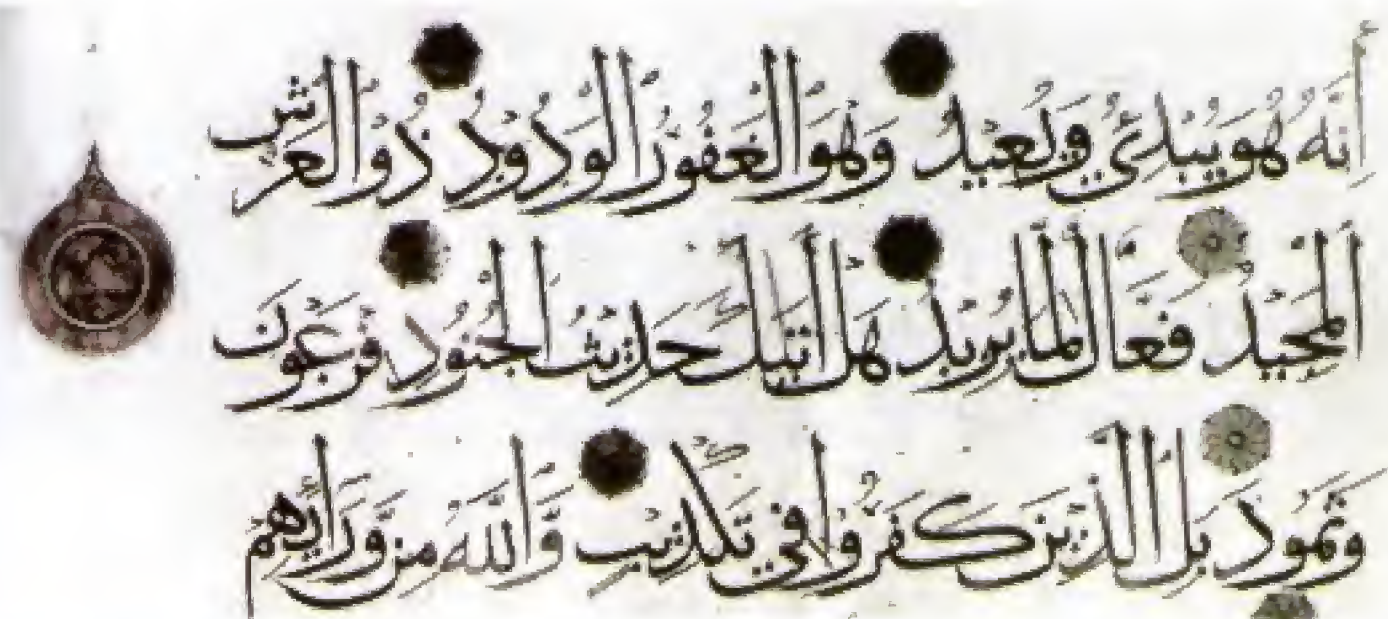 إِنَّهُ هُوَ يُبْدِئُ وَيُعِيدُ وَهُوَ الْغَفُورُ الْوَدُودُ ذُو الْعَرْشِ
الْمَجِيدُ فَعَّالٌ لِمَا يُرِيدُ هَلْ أَتَيكَ حَدِيثُ الْجُنُودِ فِرْعَوْنَ
وَثَمُودَ بَلِ الَّذِينَ كَفَرُوا فِي تَكْذِيبٍ وَّاللَّهُ مِنْ وَّرَائِهِمْ